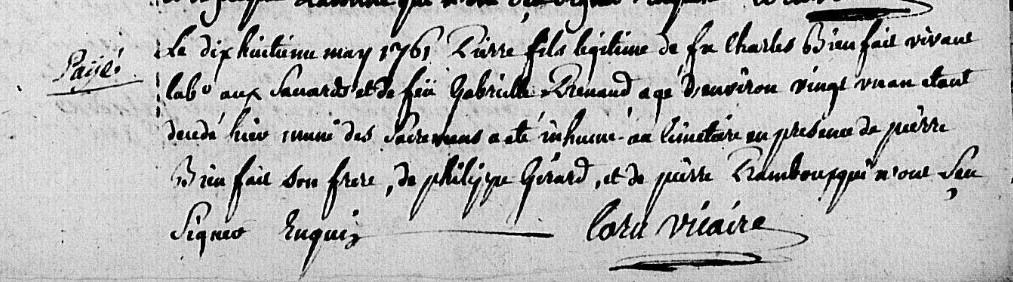 Le dix huitieme may 1761 Pierre fils legitime de fu Charles Bienfait vivant
Payé.
labr aux Savards et de feü Gabrielle Renaud agé d'environ vingt un an etant
decedé hier muni des Sacremens a eté inhumé au Cimetiere en presence de pierre
Bienfait son frere, de philippe Girard, et de pierre qui n'ont Sçu
Signer Enquis
Vicaire